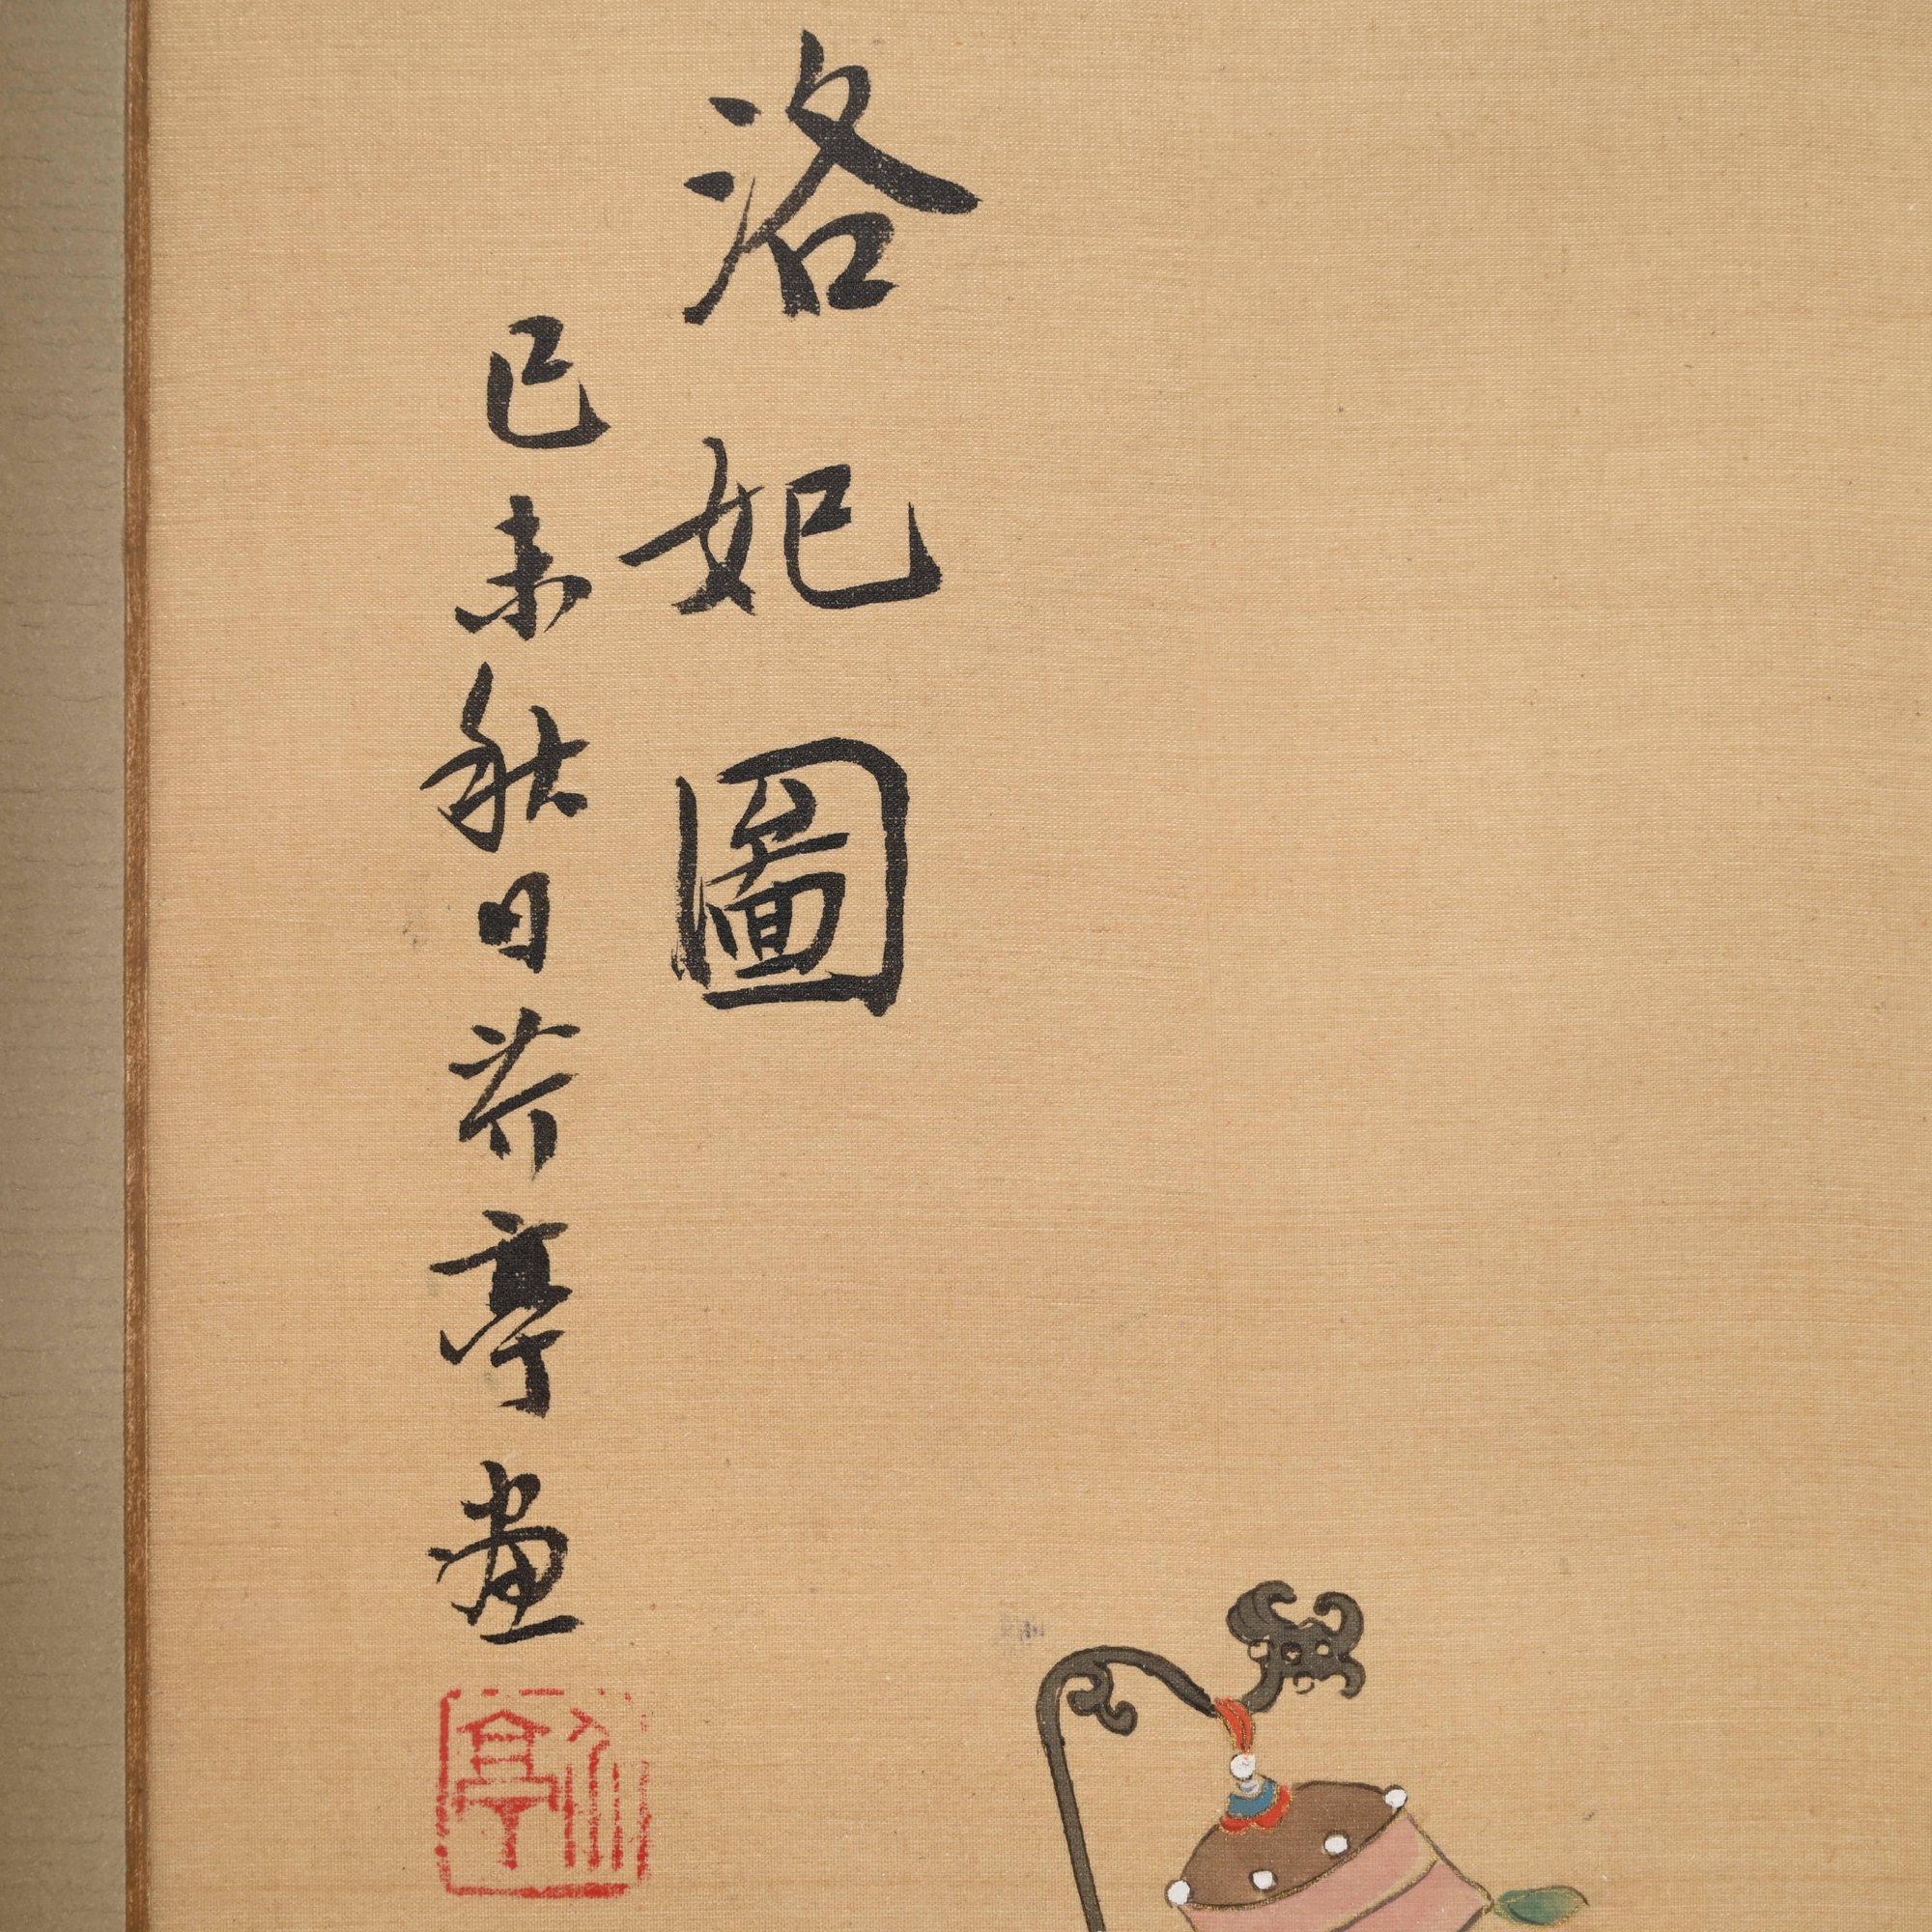 洛妃圖
己未秋日芥亭畫
介亭